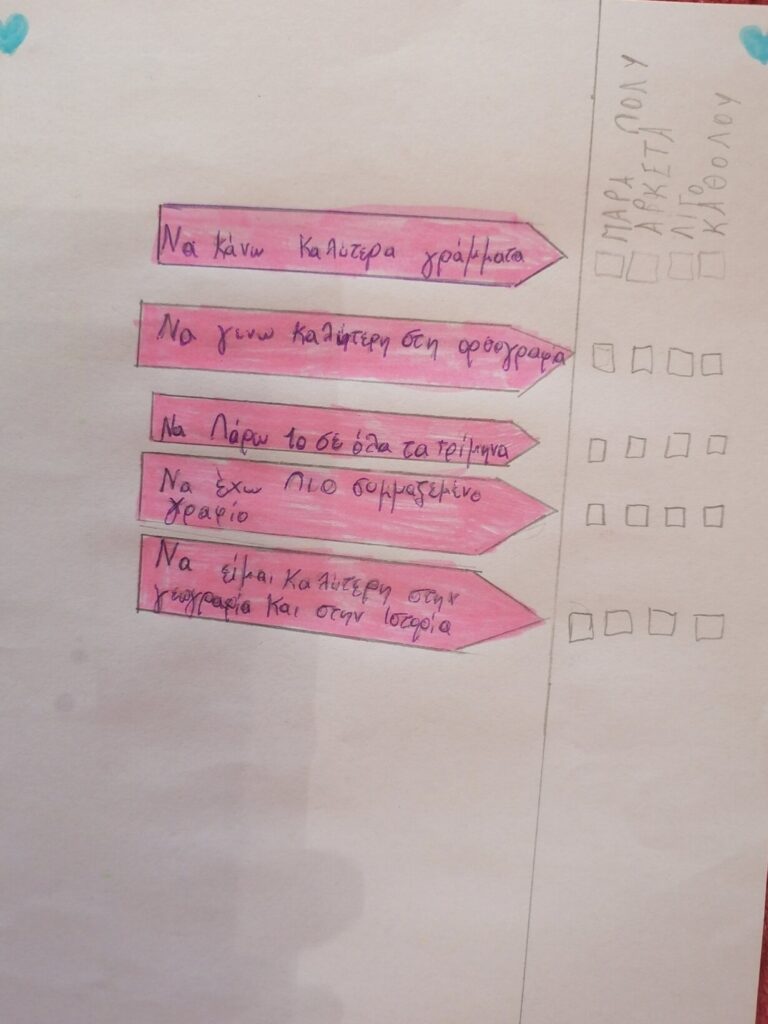 ΠΑΡΑ ΠΟΛΥ
ΑΡΚΕΤΑ
ΛΙΓΟ
ΚΑΘΟΛΟΥ
Να κάνω καλύτερα γράμματα
Να γενω καλύτερη στη ορθογραφία
Να πάρω 10 σε όλα τα τρίμηνα
Να έχω πιο συμμαζεμένο
γραφίο
Να είμαι καλύτερη στην
γεωγραφία και στην Ιστορία